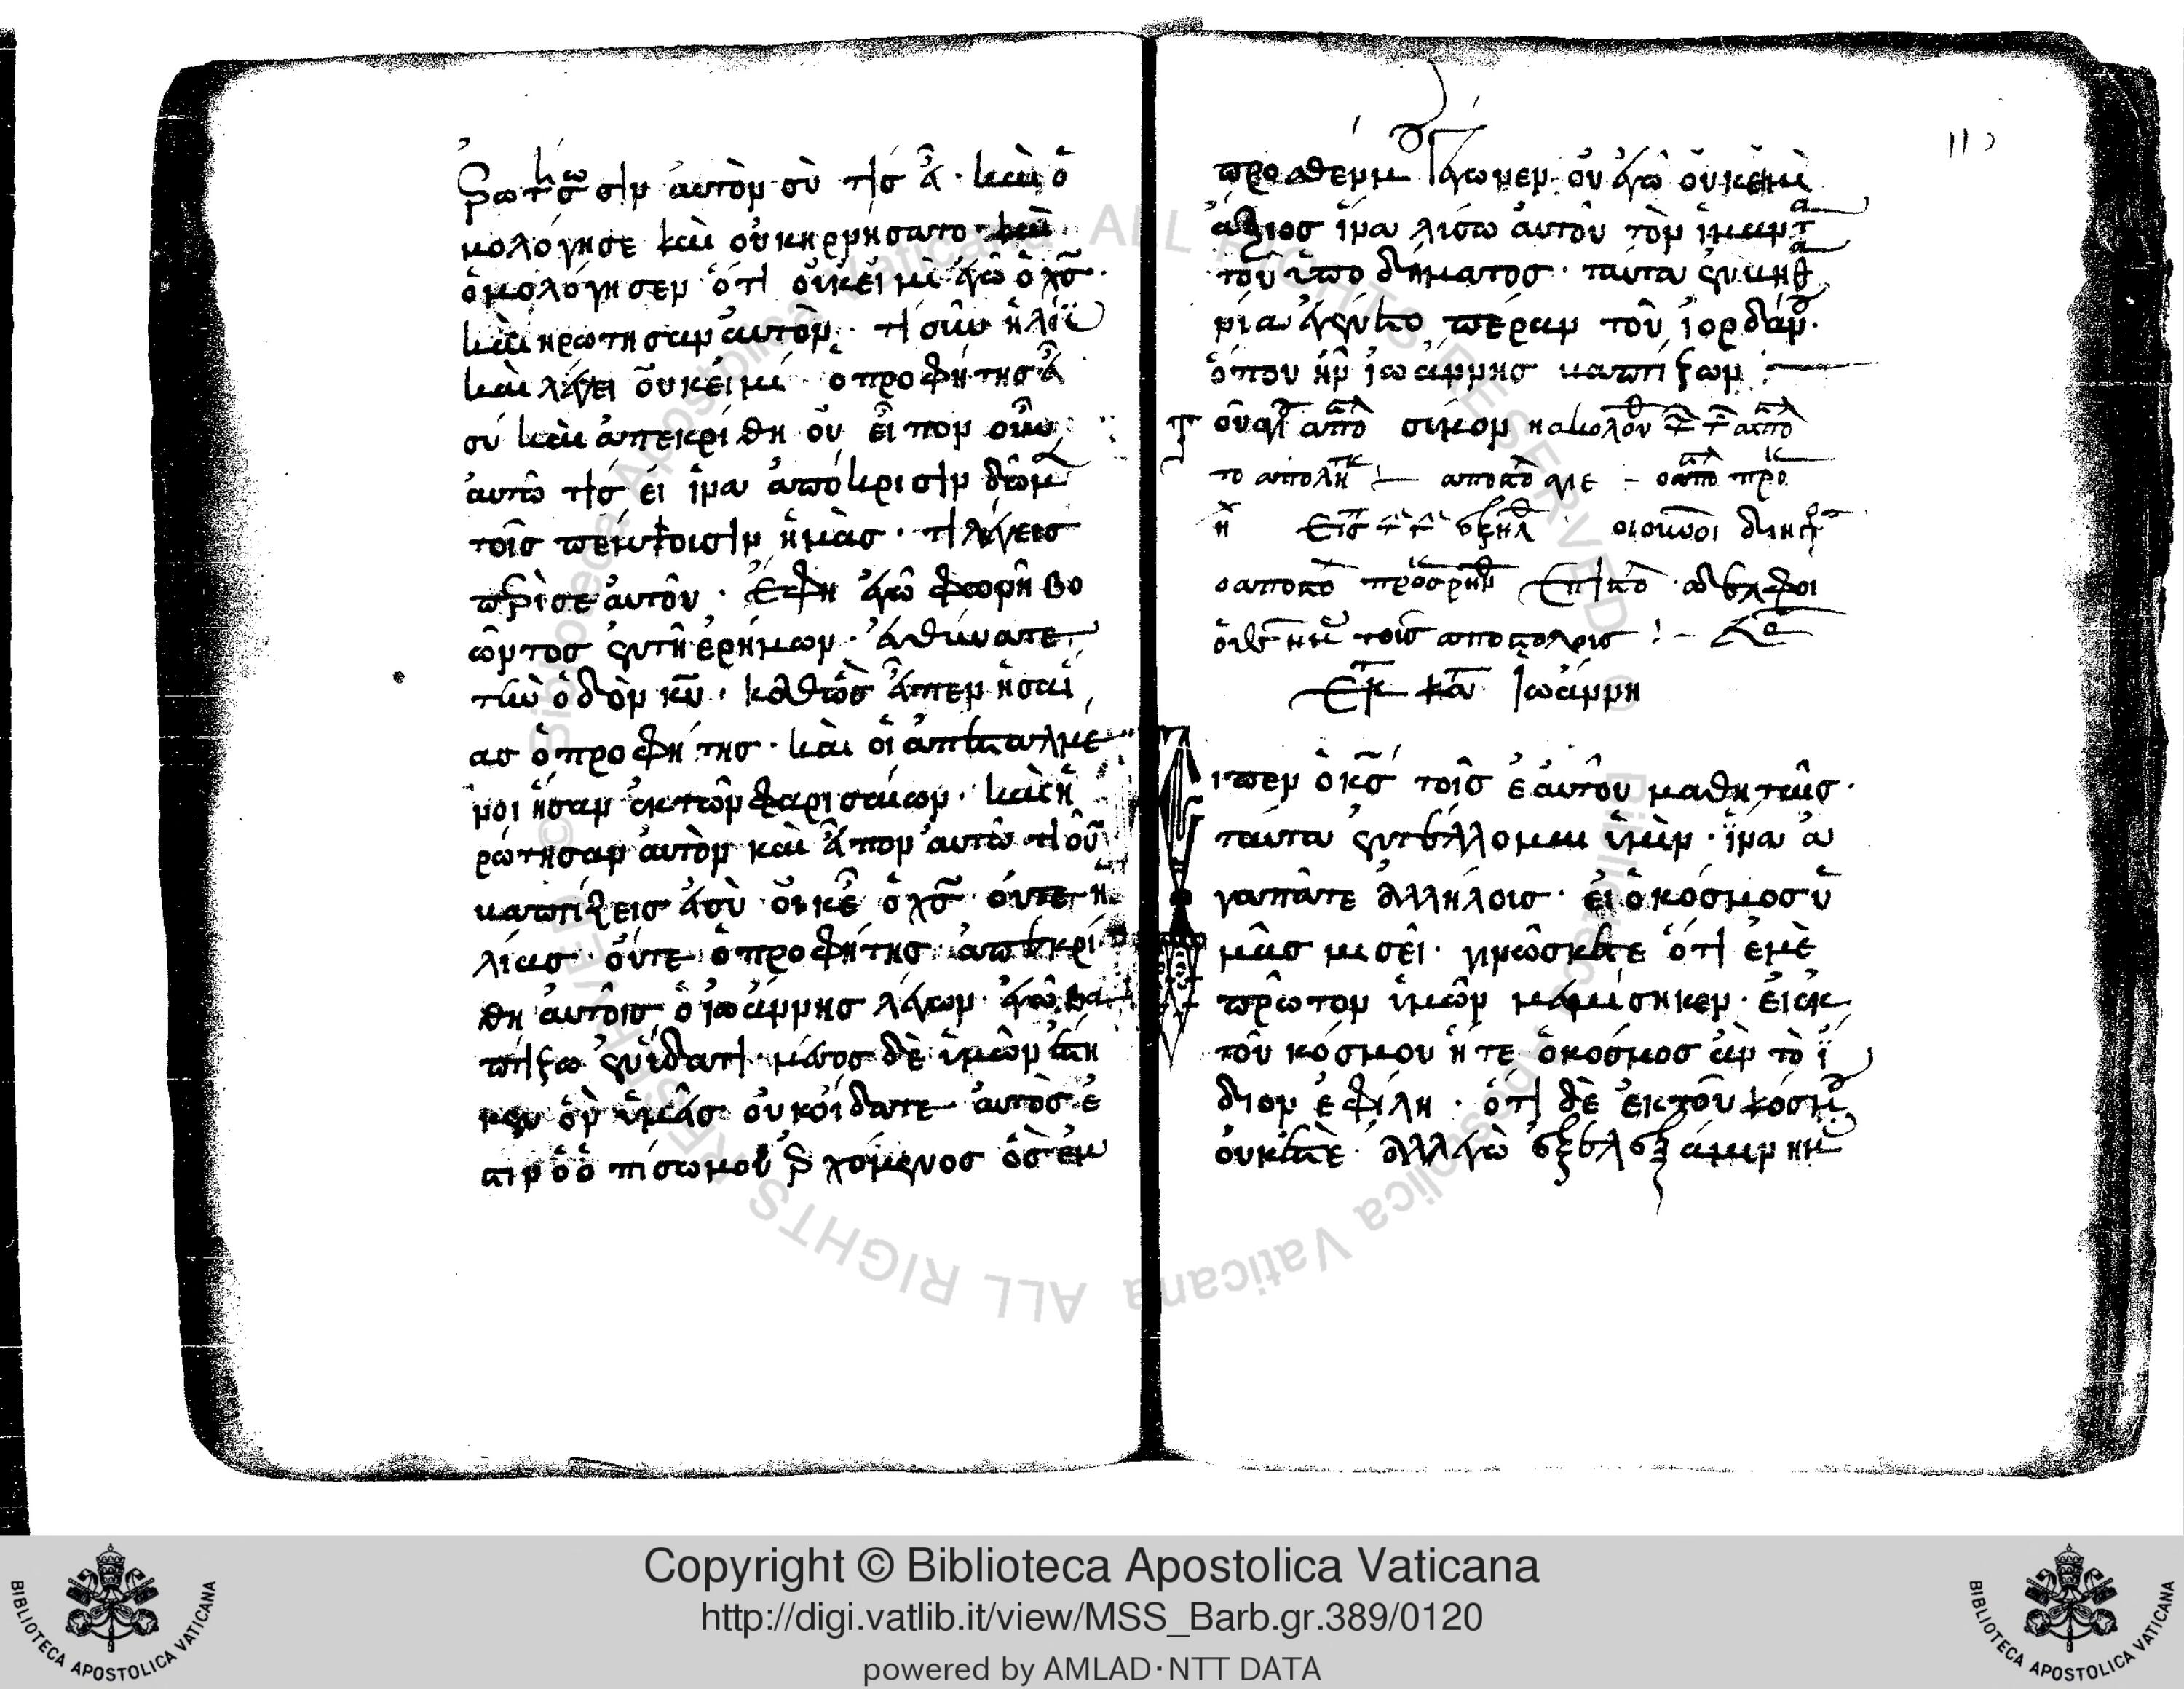 ἐρωτήσωσιν αὐτὸν σὺ τίς εἶ· καὶ ὁ
μολόγησε καὶ οὐκ ηρνήσατο· καὶ
ὁμολόγησεν ὅτι οὐκ εἰμὶ ἐγὼ ὁ χς·
καὶ ηρώτησαν αὐτὸν· τί οὖν ἡλί
καὶ λέγει οὐκ εἰμί· ὁ προφήτης εἶ
σύ καὶ ἀπεκρίθη οὔ εἶπον οὖν
αὐτῶ τίς εἶ ἵνα ἀπόκρισιν δῶμεν
τοῖς πέμψασιν ἡμᾶς· τί λέγεις
περὶ σε αὐτοῦ· ἔφη ἐγὼ φωνὴ βο
ῶντος ἐν τῆ ἐρήμω· εὐθύνατε
τὴν ὁδὸν κυ· καθὼς εἶπεν ἡσαΐ
ας ὁ προφήτης· καὶ οἱ ἀπεσταλμέ
νοι ἦσαν ἐκ τῶν φαρισαίων· καὶ ἠ
ρώτησαν αὐτὸν καὶ εἶπον αὐτῶ τί οὖν
βαπτίζεις εἰ σὺ οὐκ εἶ ὁ χς οὔτε ἡ
λίας· οὔτε ὁ προφήτης ἀπεκρί
θη αὐτοῖς ὁ ἰωάννης λέγων· ἐγὼ βα
πτίζω ἐν ὕδατι· μέσος δὲ ὑμῶν ἕστη
κεν ὃν ὑμεῖς οὐκ οἴδατε αὐτὸς ἐ
στιν ὁ ὀπίσω μου ἐρχόμενος ὃς ἔμ
προσθέν μου γέγονεν· οὗ ἐγὼ οὐκ εἰμὶ
ἄξιος ἵνα λύσω αὐτοῦ τὸν ἱμάντα
τοῦ ὑποδήματος· ταῦτα ἐν βηθα
νία ἐγένετο πέραν τοῦ ἰορδάνου·
ὅπου ἦν ἰωάννης βαπτίζων
Ἐκ κατὰ Ἰωάννη
ιπεν ὁ κς τοῖς ἑαυτοῦ μαθηταῖς·
ταῦτα ἐντέλλομαι ὑμῖν· ἵνα ἀ
γαπᾶτε ἀλλήλοις· εἰ ὁ κόσμος ὑ
μᾶς μισεῖ· γινώσκετε ὅτι ἐμὲ
πρῶτον ὑμῶν μεμίσηκεν· εἰ ἐκ
τοῦ κόσμου ἦτε ὁ κόσμος ἂν τὸ ἴ
διον ἐφίλη· ὅτι δὲ ἐκ τοῦ κόσμου
οὐκ ἐστὲ· ἀλλ' ἐγὼ ἐξελεξάμην ὑμ
Copyright © Biblioteca Apostolica Vaticana
http://digi.vatlib.it/view/MSS_Barb.gr.389/0120
powered by AMLAD·NTT DATA
BIBLIOTECA APOSTOLICA VATICANA
BIBLIOTECA APOSTOLICA VATICANA